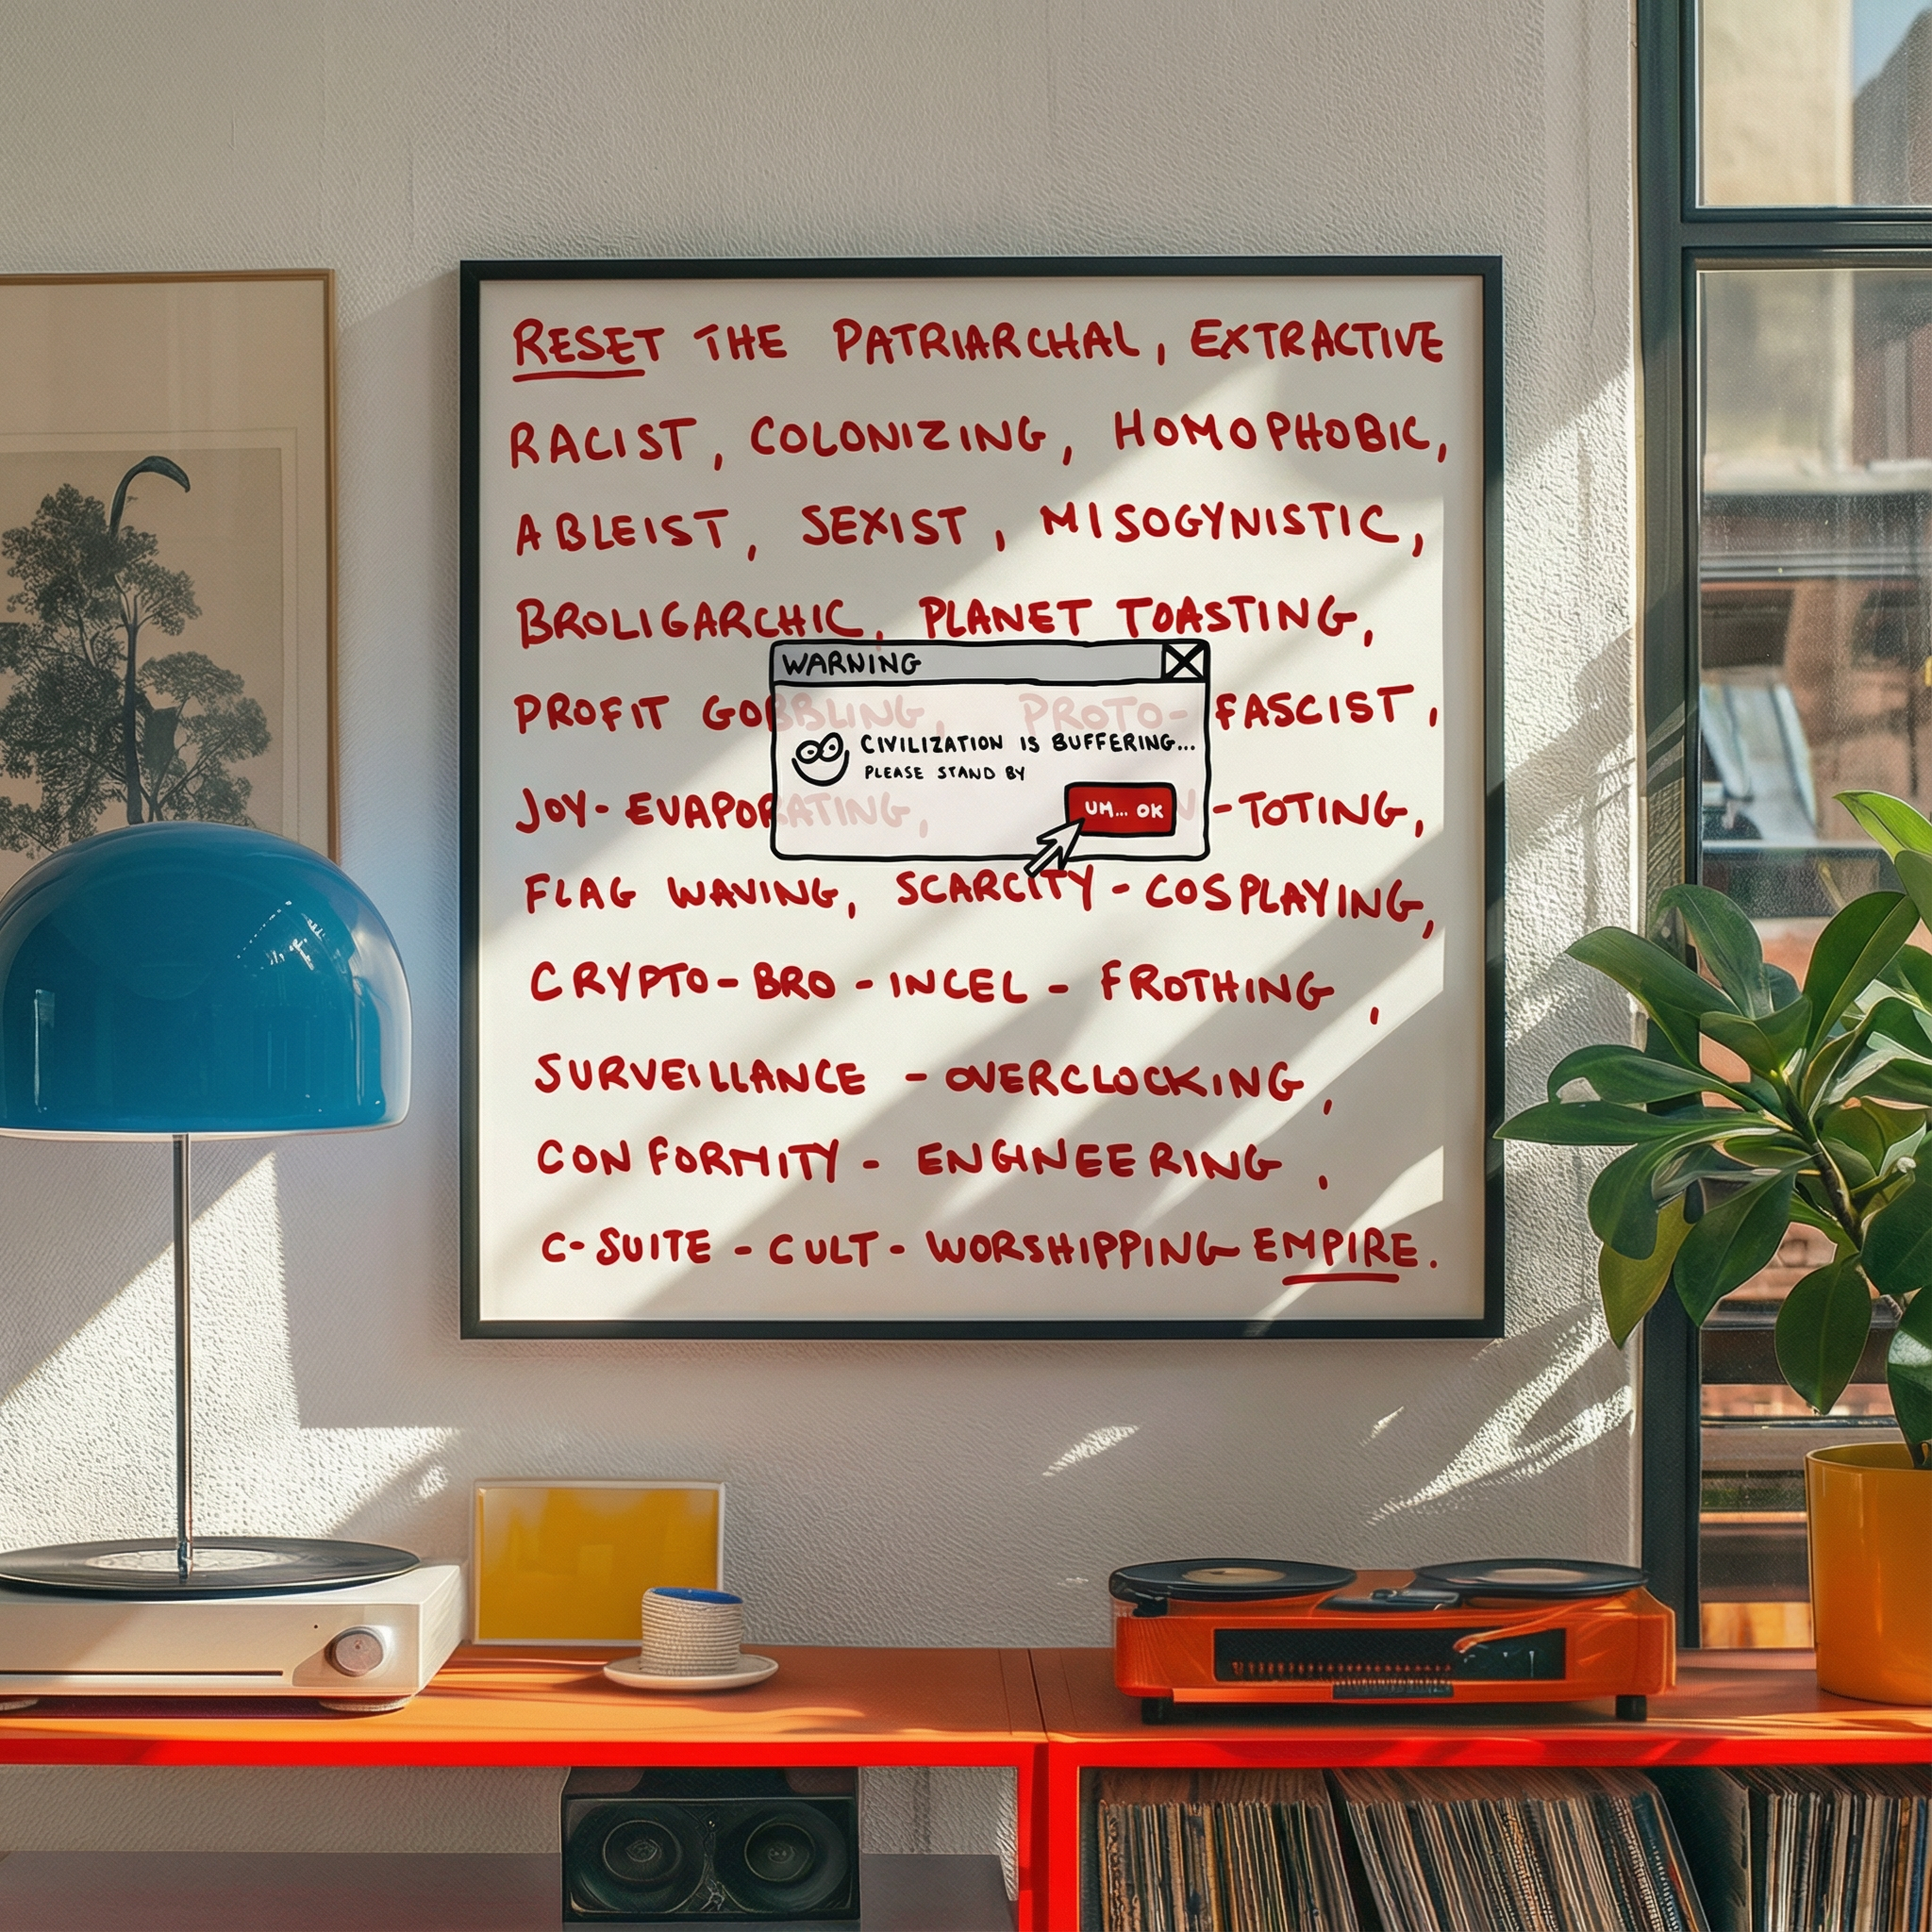 RESET THE PATRIARCHAL, EXTRACTIVE
RACIST, COLONIZING, HOMOPHOBIC,
ABLEIST, SEXIST, MISOGYNISTIC,
BROLIGARCHIC, PLANET TOASTING,
WARNING
PROFIT GOBBLING, PROTO-FASCIST,
CIVILIZATION IS BUFFERING...
PLEASE STAND BY
JOY-EVAPORATING, -TOTING,
UM... OK
FLAG WAVING, SCARCITY-COSPLAYING,
CRYPTO-BRO-INCEL-FROTHING,
SURVEILLANCE-OVERCLOCKING,
CONFORMITY-ENGINEERING,
C-SUITE-CULT-WORSHIPPING EMPIRE.